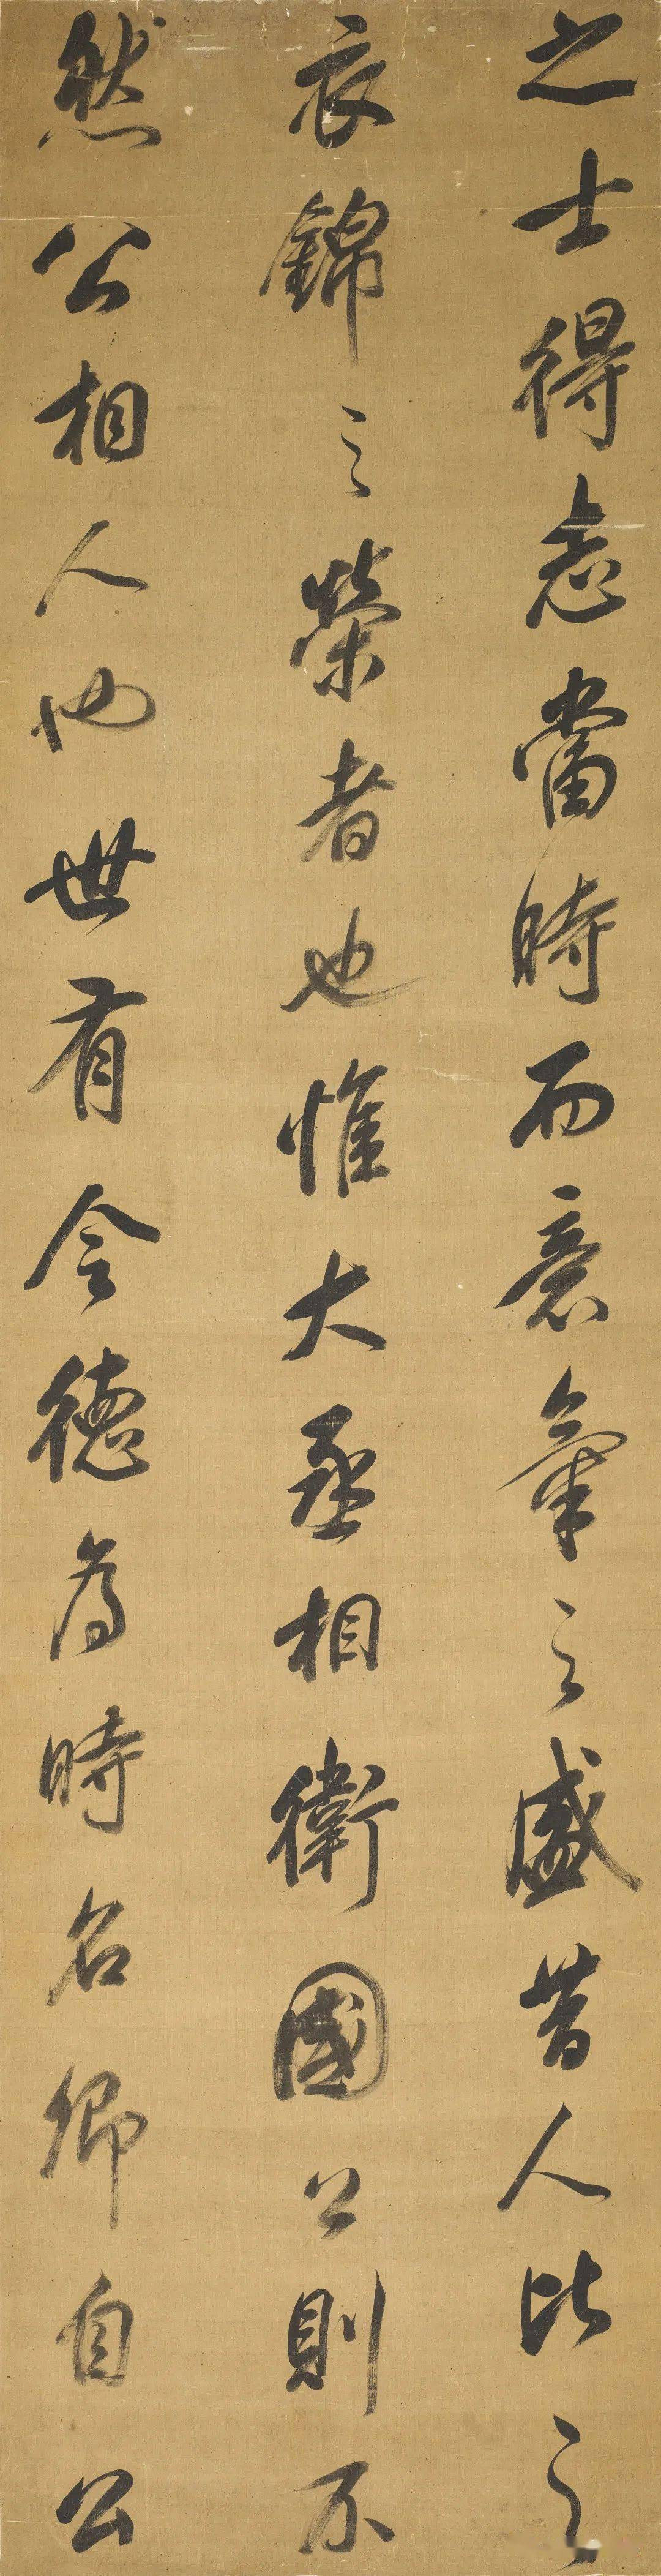 之士得志當時而意氣之盛昔人比之
衣錦之榮者也惟大丞相衛國公則不
然公相人也世有令德為時名卿自公